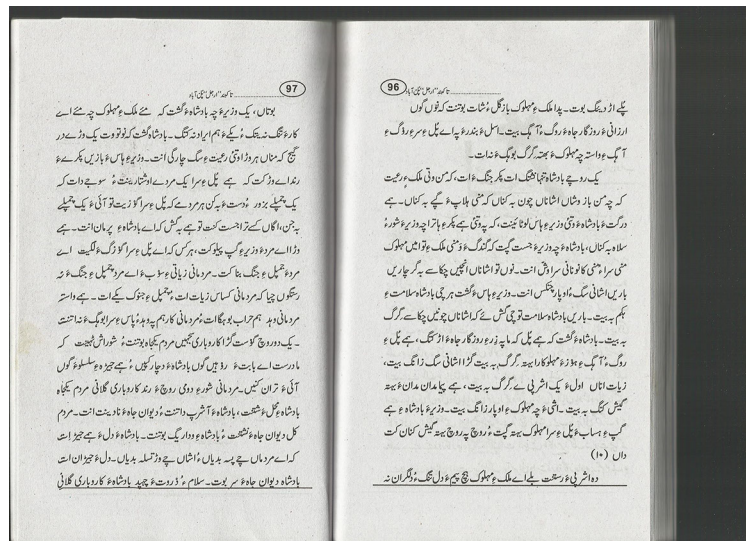 96
پُلے اڑ دیگ بوت۔ پدا ملک ءِ مہلوک باز گل ءُ شات بوتنت کہ نوں گوں
ارزانی ءَ روزگار جاہ ءَ روگ ءُ آہگ بیت۔ اسل ءَ بندر ءَ پہ اے پُل ءِ سر ءَ رؤگ ءِ
آہگ ءِ واستہ چہ مہلوک ءَ بھتہ گرگ بوہگ ءَ نہ ات۔
یک روچے بادشاہ تہنا نشتگ ات پکر جنگ ءَ ات، کہ من وتی ملک ءِ رعیت
کہ چہ من باز وشاں اشاناں چون بہ کناں کہ منی ہلاپ ءَ گپے بہ کناں۔ ہے
درگت ءَ بادشاہ ءَ وتی وزیر ءِ ہاس لوٹائینت، کہ پہ وتی ہے پکر ءِ ہاترا چہ وزیر ءَ شور ءُ
سلاہ بہ کناں، بادشاہ ءَ چہ وزیر ءَ جست گپت کہ گندگ ءَ منی ملک ءِ توامیں مہلوک
منی سراء منی کانونانی سراوش انت۔ نوں تو اشاناں انچیں چکاسے بہ گر چاریں
باریں اشانی سگ ءُ اوپار چنکس انت۔ وزیر ءِ ہاس ءَ گشت ہرچی بادشاہ سلامت ءِ
ہکم بہ بیت۔ باریں بادشاہ سلامت تو چی گش ئے کہ اشاناں چونیں چکاسے گرگ
بہ بیت۔ بادشاہ ءَ گشت کہ ہے پُل کہ ما پہ زر ءِ روزگار جاہ ءَ اڑ کتگ، ہے پُل ءِ
روگ ءُ آہگ ءِ ہؤز ءَ مہلوکا را بہتہ گرگ بہ بیت گڑا اشانی سگ زانگ بیت،
زیات اناں اول ءَ یک اشرپی ءَ گرگ بہ بیت، ہے پیا مدان مدان ءَ بہتہ
گیش کنگ بہ بیت۔ اشی ءَ چہ مہلوک ءِ اوپار زانگ بیت۔ وزیر ءَ بادشاہ ءِ ہے
گپ ءِ ہساب ءَ پُل ءِ سرا مہلوک بہتہ گپت ءُ روچ پہ روچ بہتہ گیش کنان کت
داں (۱۰)
دہ اشرپی ءَ رستت بلے اے ملک ءِ مہلوک ہچ پیم ءَ دل تنگ ءُ دلگران نہ
97
بوتاں، یک وزیر ءَ چہ بادشاہ ءَ گشت کہ مئے ملک ءِ مہلوک چہ مئے اے
کار ءَ تنگ نہ بتگ ءُ یکے ءَ ہم ایراد نہ کتگ۔ بادشاہ گشت کہ تو توت یک وڑے در
گیج کہ مناں ہر وڑا وتی رعیت ءِ سگ چارگی انت۔ وزیر ءِ ہاس ءَ بازیں پکرے ءَ
رند اے وڑ کت کہ ہے پُل ءِ سرا یک مردے اوشتارینت ءُ سوجے دات کہ
یک چنپلے بزور ءُ دست ءَ بہ کن ہر مردے کہ پُل ءِ سرا گوزیت تو آئی ءَ یک چنپلے
بہ جن، اگاں کسے ترا جست کنت تو ہے بہ گش کہ اے بادشاہ ءِ پرمان انت۔ ہے
وڑا اے مرد ءَ وزیر ءِ گپ پیلو کت، ہرکس کہ اے پُل ءِ سرا گوزگ ءَ لگیت اے
مرد ءَ چمپل ءِ جنگ بنا کت۔ مردمانی زیاتی ءِ سوب ءَ اے مرد چمپل ءِ جنگ ءَ نہ
رستگوں چیا کہ مردمانی کساس زیات ات ءُ چمپل ءِ جنوک یکے ات۔ ہے واستہ
مردمانی وہد ہم خراب بوہگا ات ءُ مردمانی کار ہم پہ وہد ءُ پاس ءِ سرا بوہگ ءَ نہ اتنت
۔ یک دو روچ ءَ گوست گڑا کاروباری تہیں مردم یکجاہ بوتنت ءُ شوراش ٹہینت کہ
مادرست اے بابت ءَ رؤیں گوں بادشاہ ءَ دچار کپیں ءُ ہے جیڑہ ءِ سلسلو ءَ گوں
آئی ءَ تران کنیں۔ مردمانی شور ءِ دومی روچ ءَ رند کاروباری گلانی مردم یکجاہ
بادشاہ ءِ محل ءَ شتنت، بادشاہ ءَ آ شرپ داتنت ءُ دیوان جاہ ءَ نادینت انت۔ مردم
کل دیوان جاہ ءَ نشتنت ءُ بادشاہ ءِ ودار یگ بوتنت۔ بادشاہ ءَ دل ءَ ہے جیڑ ات
کہ اے مرد ماں چے پسہ بدیاں ءُ اشاں چے وڑ تسلہ بدیاں۔ دل ءَ جیڑان ات
بادشاہ دیوان جاہ ءَ سر بوت۔ سلام ءُ دروت ءَ چہد بادشاہ ءَ کاروباری گلانی